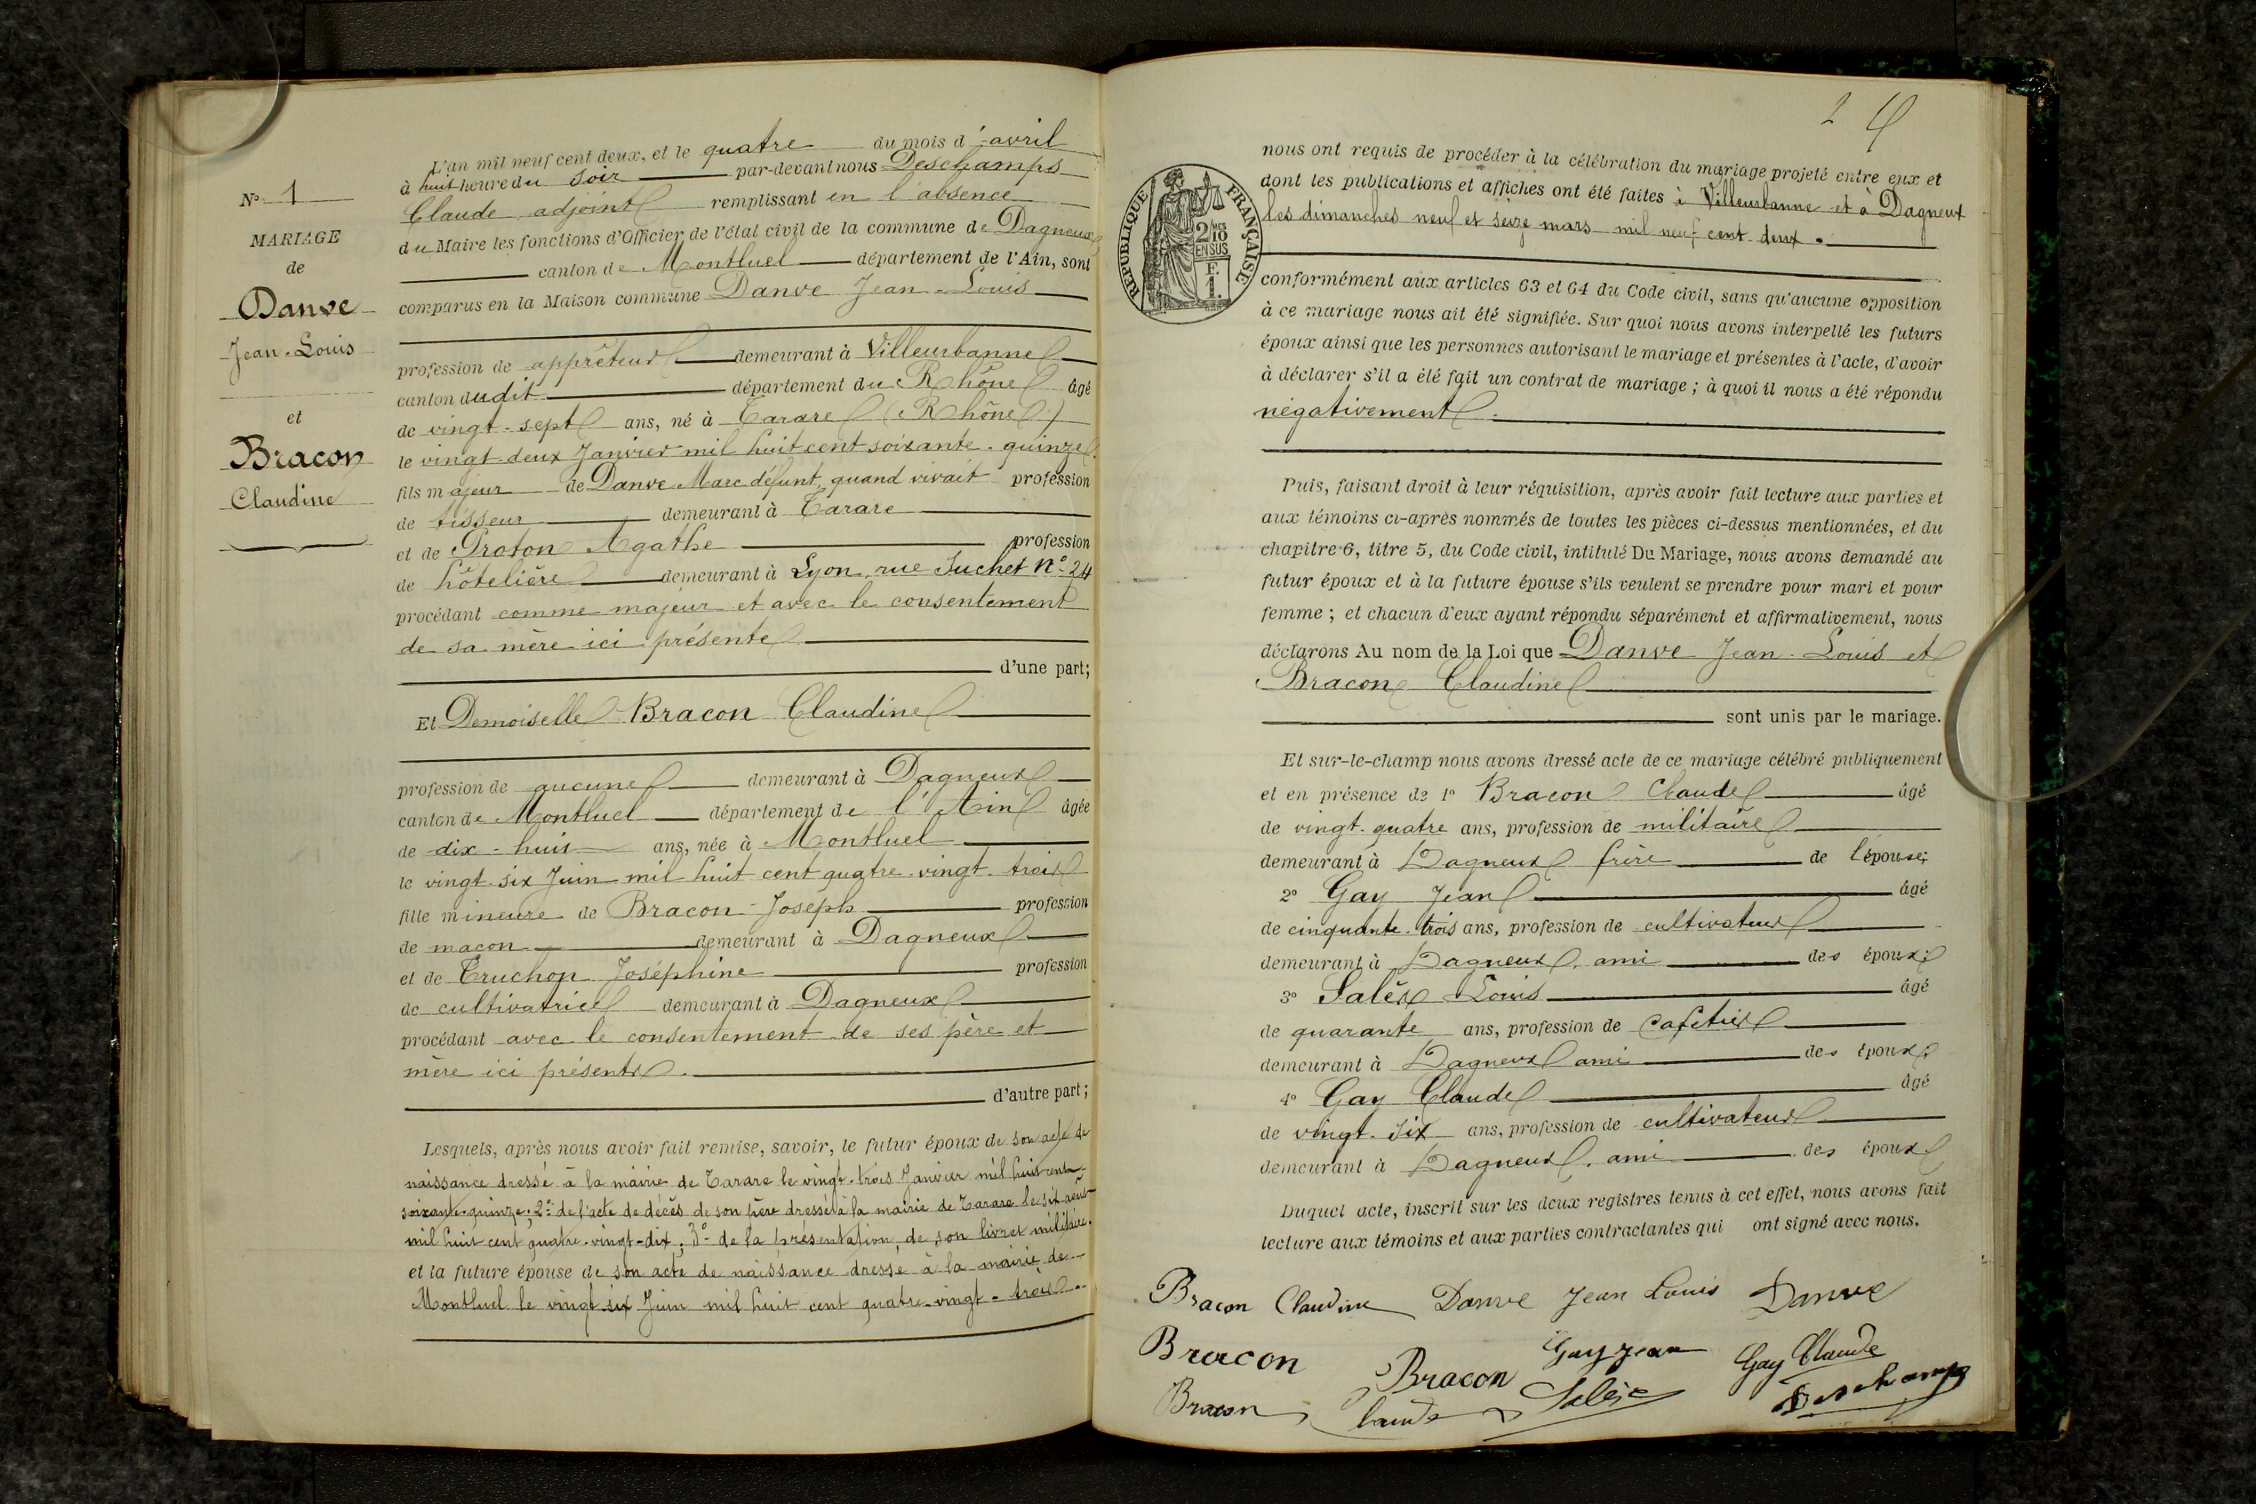 N° 1
MARIAGE
de
Danve
Jean-Louis
et
Bracon
Claudine
L'an mil neuf cent deux, et le quatre du mois d'avril
à huit heure du soir par-devant nous Deschamps
Claude adjoint remplissant en l'absence
du Maire les fonctions d'Officier de l'état civil de la commune de Dagneux
canton de Montluel département de l'Ain, sont
comparus en la Maison commune Danve Jean-Louis
profession de apprêteur demeurant à Villeurbanne
canton dudit département du Rhône âgé
de vingt-sept ans, né à Tarare (Rhône)
le vingt-deux Janvier mil huit cent soixante-quinze.
fils majeur de Danve Marc défunt, quand vivait profession
de tisseur demeurant à Tarare
et de Proton Agathe profession
de hôtelière demeurant à Lyon, rue Suchet n° 24
procédant comme majeur et avec le consentement
de sa mère ici présente
d'une part;
Et Demoiselle Bracon Claudine
profession de aucune demeurant à Dagneux
canton de Montluel département de l'Ain âgée
de dix-huit ans, née à Montluel
le vingt-six Juin mil huit cent quatre-vingt-trois
fille mineure de Bracon Joseph profession
de maçon demeurant à Dagneux
et de Truchon Joséphine profession
de cultivatrice demeurant à Dagneux
procédant avec le consentement de ses père et
mère ici présents.
d'autre part;
Lesquels, après nous avoir fait remise, savoir, le futur époux de son acte de
naissance dressé à la mairie de Tarare le vingt-trois Janvier mil huit cent
soixante-quinze; 2° de l'acte de décès de son père dressé à la mairie de Tarare le six août
mil huit cent quatre-vingt-dix; 3° de la présentation de son livret militaire.
et la future épouse de son acte de naissance dressé à la mairie de
Montluel le vingt six Juin mil huit cent quatre-vingt-trois.
2 4
RÉPUBLIQUE FRANÇAISE
2 MES
10
EN SUS
F.
1.
nous ont requis de procéder à la célébration du mariage projeté entre eux et
dont les publications et affiches ont été faites à Villeurbanne et à Dagneux
les dimanches neuf et seize mars mil neuf cent deux.
conformément aux articles 63 et 64 du Code civil, sans qu'aucune opposition
à ce mariage nous ait été signifiée. Sur quoi nous avons interpellé les futurs
époux ainsi que les personnes autorisant le mariage et présentes à l'acte, d'avoir
à déclarer s'il a été fait un contrat de mariage; à quoi il nous a été répondu
négativement.
Puis, faisant droit à leur réquisition, après avoir fait lecture aux parties et
aux témoins ci-après nommés de toutes les pièces ci-dessus mentionnées, et du
chapitre 6, titre 5, du Code civil, intitulé Du Mariage, nous avons demandé au
futur époux et à la future épouse s'ils veulent se prendre pour mari et pour
femme; et chacun d'eux ayant répondu séparément et affirmativement, nous
déclarons Au nom de la Loi que Danve Jean-Louis et
Bracon Claudine
sont unis par le mariage.
Et sur-le-champ nous avons dressé acte de ce mariage célébré publiquement
et en présence de 1° Bracon Claude âgé
de vingt-quatre ans, profession de militaire
demeurant à Dagneux frère de l'épouse;
2° Gay Jean âgé
de cinquante-trois ans, profession de cultivateur
demeurant à Dagneux, ami des époux;
3° Salés Louis âgé
de quarante ans, profession de cafetier
demeurant à Dagneux ami des époux;
4° Gay Claude âgé
de vingt-six ans, profession de cultivateur
demeurant à Dagneux, ami des époux
Duquel acte, inscrit sur les deux registres tenus à cet effet, nous avons fait
lecture aux témoins et aux parties contractantes qui ont signé avec nous.
Bracon Claudine Danve Jean Louis Danve
Bracon Bracon Gay Jean Gay Claude
Bracon Claude Salés Deschamps